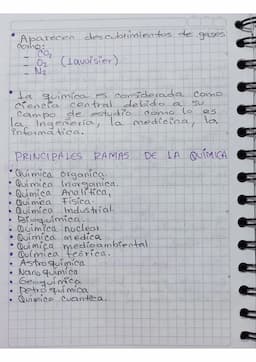 • Aparecen descubrimientos de gases
como:
– CO₂
– O₂ (Lavoisier)
– N₂
• La química es considerada como
ciencia central debido a su
campo de estudio como lo es
la Ingeniería, la medicina, la
informática.
PRINCIPALES RAMAS DE LA QUÍMICA
• Química Organica.
• Química Inorganica.
• Química Analítica,
• Química Física.
• Química Industrial
• Bioquímica.
• Química nuclear
• Química medica
• Química medioambiental
• Química teórica.
• Astroquímica
• Nanoquímica
• Geoquímica
• Petroquímica
• Química cuantica.